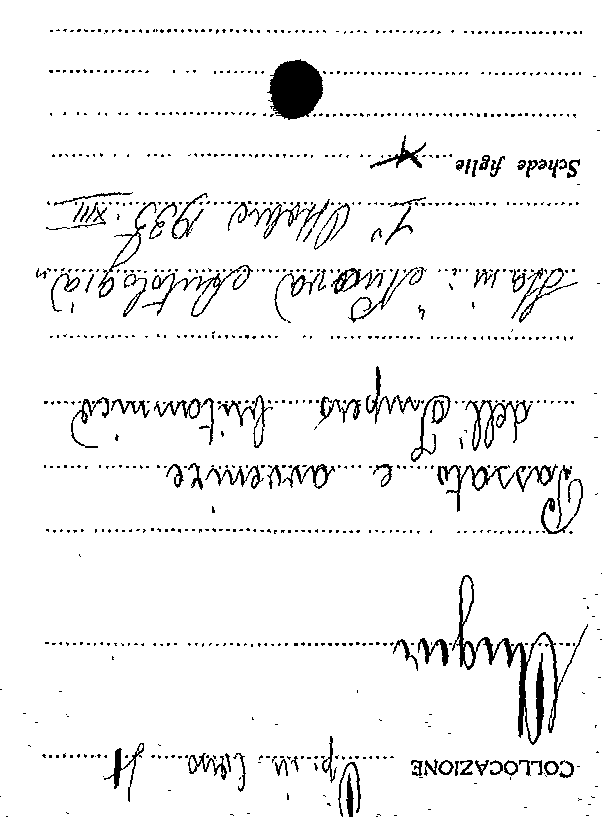 COLLOCAZIONE Op. in Corso
Augur
Passato e avvenire
dell'Impero britannico
Sta in: "Nuova Antologia"
1° Ottobre 1935. XIII
Schede figlie